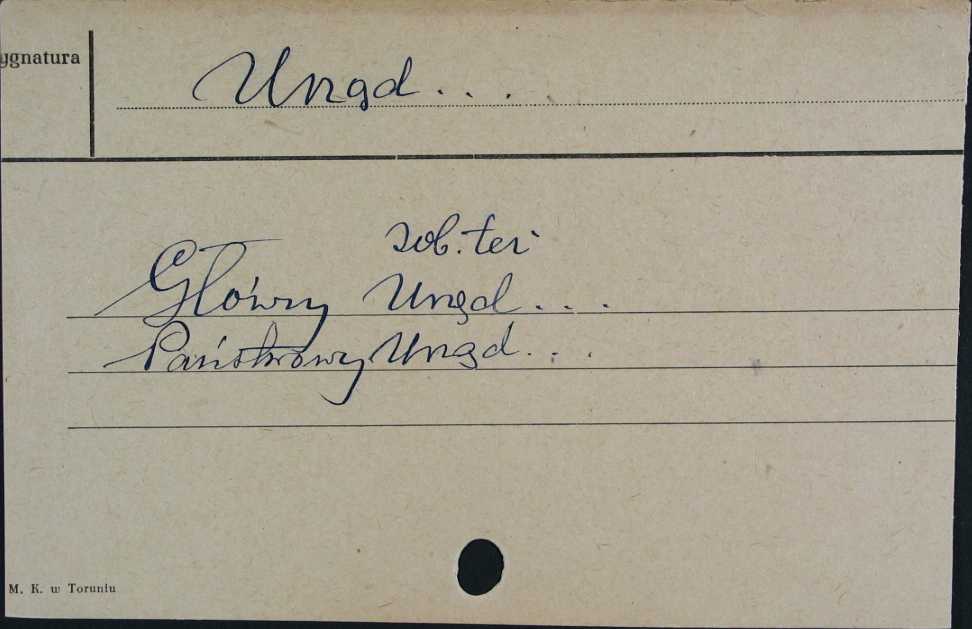 ygnatura
Urząd . . .
zob. też
Główny Urząd . . .
Państwowy Urząd . . .
M. K. w Toruniu